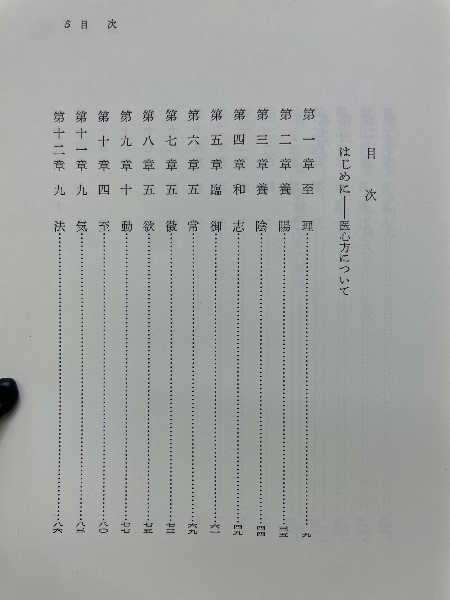 5 目 次
目 次
はじめに——医心方について
第一章 至理……九
第二章 養陽……三五
第三章 養陰……四四
第四章 和志……四九
第五章 臨御……六一
第六章 五常……六九
第七章 五徴……七三
第八章 五欲……七五
第九章 十動……七七
第十章 四至……八〇
第十一章 九気……八三
第十二章 九法……八六